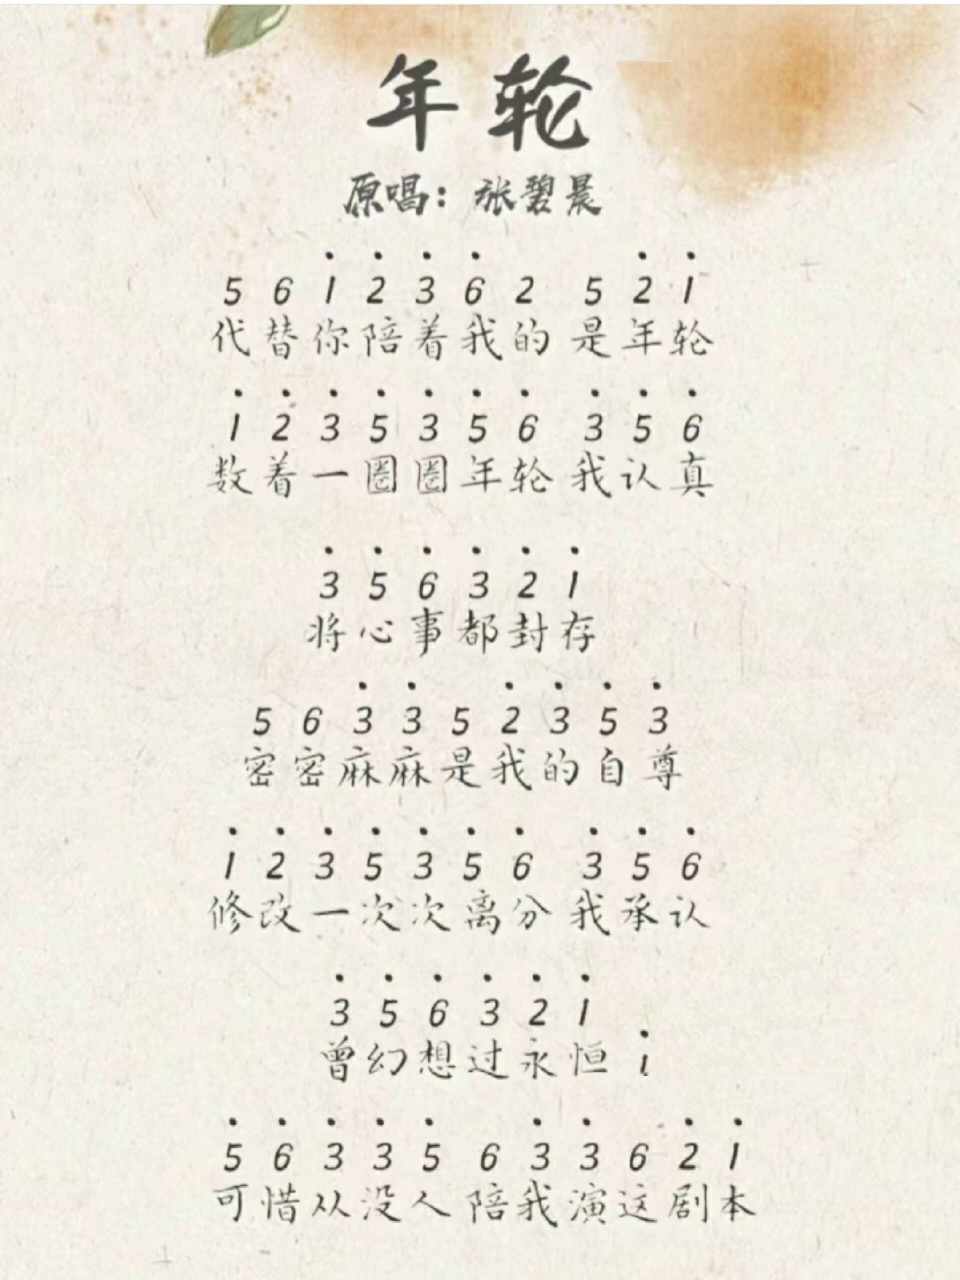 年轮
原唱：张碧晨
5 6 1̇ 2̇ 3̇ 6̇ 2 5 2̇ 1̇
代替你陪着我的 是年轮
1̇ 2̇ 3̇ 5̇ 3̇ 5̇ 6̇ 3̇ 5̇ 6̇
数着一圈圈年轮 我认真
3̇ 5̇ 6̇ 3̇ 2̇ 1̇
将心事都封存
5 6 3̇ 3̇ 5 2̇ 3̇ 5̇ 3̇
密密麻麻是我的自尊
1̇ 2̇ 3̇ 5̇ 3̇ 5̇ 6̇ 3̇ 5̇ 6̇
修改一次次离分 我承认
3̇ 5̇ 6̇ 3̇ 2̇ 1̇
曾幻想过永恒 1̇
5̇ 6̇ 3̇ 3̇ 5̇ 6 3̇ 3̇ 6 2̇ 1̇
可惜从没人 陪我演这剧本